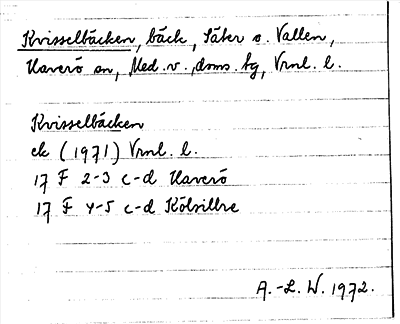 Kvisselbäcken, bäck, Säter o. Vallen,
Haverö sn, Med. v., doms. hg, Vrnl. l.
Kvisselbäcken
ek (1971) Vrnl. l.
17 F 2-3 c-d Haverö
17 F 4-5 c-d Kölsillre
A.-L. W. 1972.